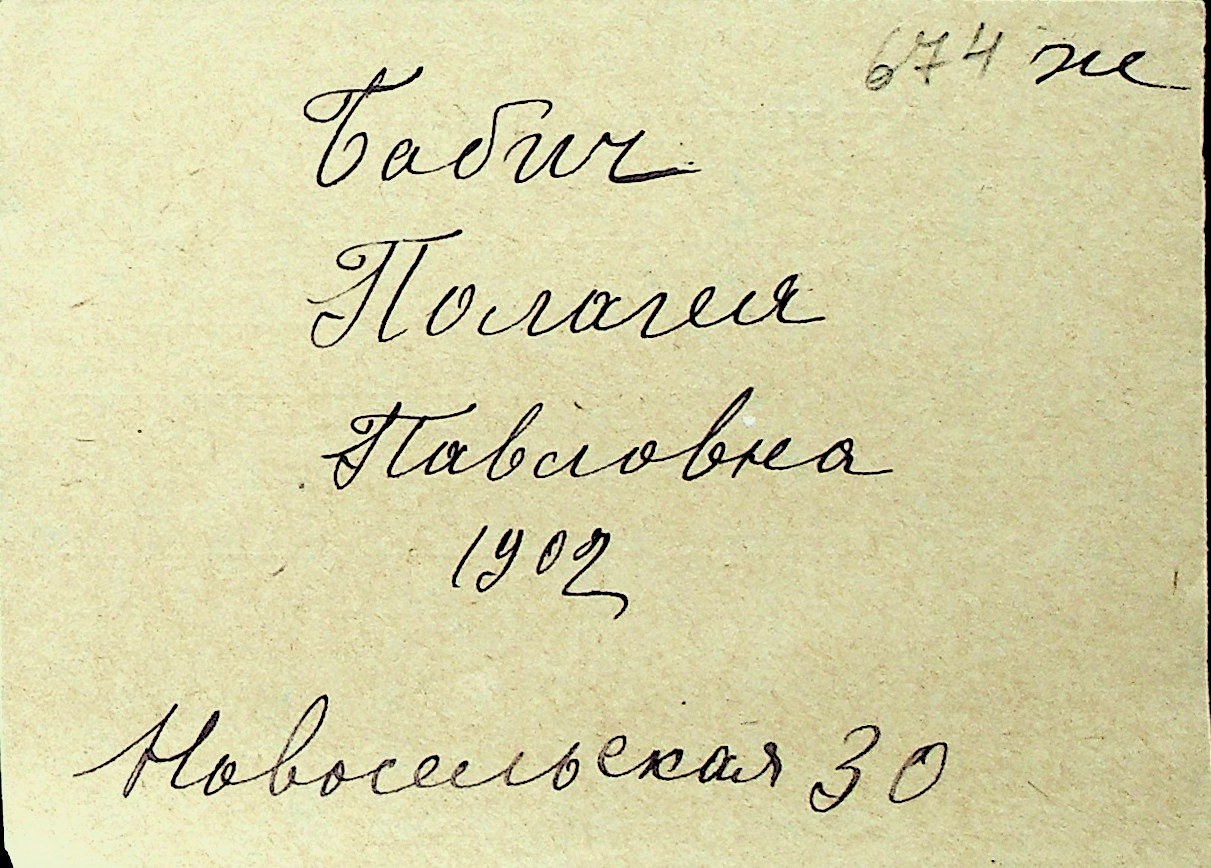 674 ж
Бабич
Полагея
Павловна
1902
Новосельская 30